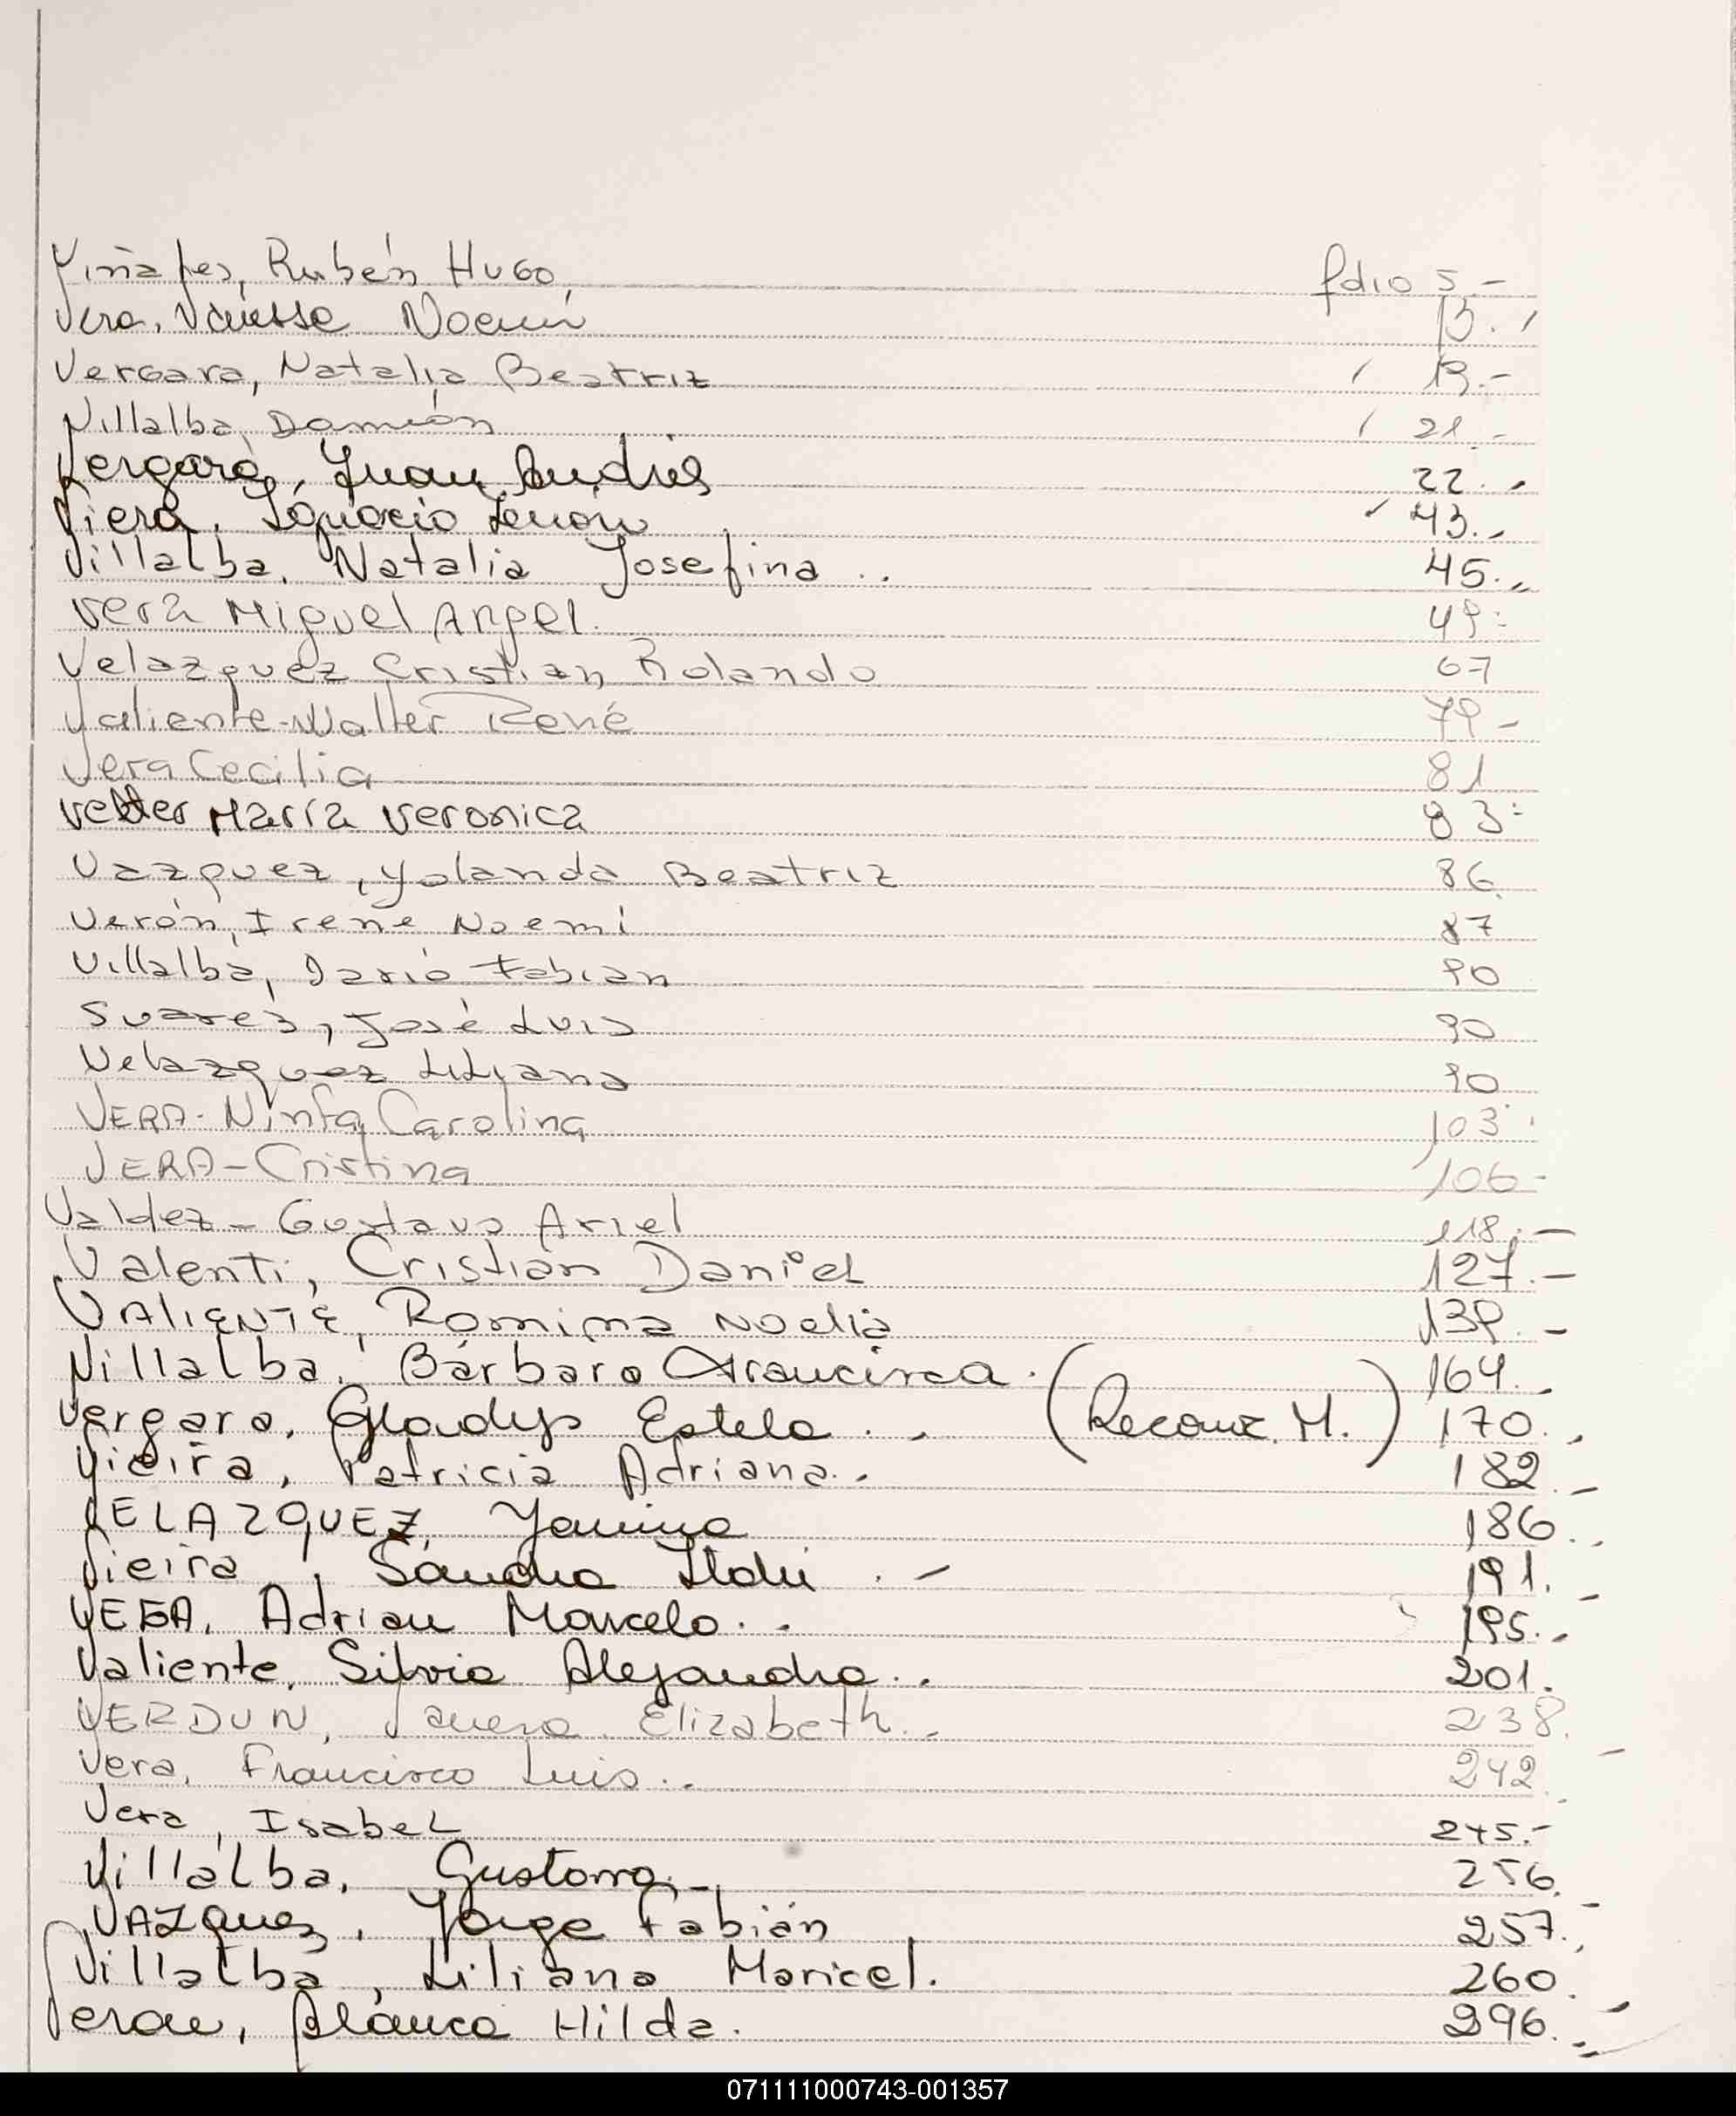 Viñales, Rubén Hugo, folio 5.-
Vera, Vanessa Noemí 13.-
Vergara, Natalia Beatriz 13.-
Villalba, Damián 21.-
Vergara, Juan Andrés 22.-
Viera, Ignacio Zenon 43.-
Villalba, Natalia Josefina.. 45.-
Vera Miguel Angel. 49-
Velazquez Cristian Rolando 67
Valiente-Walter René 79-
Vera Cecilia 81
Vetter María Veronica 83-
Vazquez, Yolanda Beatriz 86
Verón, Irene Noemí 87
Villalba, Darío Fabian 90
Suarez, José Luis 90
Velazquez Liliana 90
VERA-Ninfa Carolina 103
VERA-Cristina 106-
Valdez-Gustavo Ariel 118.-
Valenti, Cristian Daniel 127.-
VALIENTE, Romina Noelia 139.-
Villalba, Bárbara Francisca. 164.-
Vergara, Gladys Estela.. (Reconc. M.) 170.-
Vieira, Patricia Adriana.- 182.-
VELAZQUEZ, Yanina 186.-
Vieira, Sandra Itatí.- 191.-
VEGA, Adrian Marcelo.. 195.-
Valiente, Silvia Alejandra.. 201.
VERDUN, Elizabeth.- 238.
Vera, Francisco Luis.. 242.-
Vera, Isabel 245.-
Villalba, Gustavo.- 256.-
VAZquez, Jorge Fabián 257.-
Villalba, Liliana Maricel. 260.-
Veron, Blanca Hilda. 296.-
071111000743-001357